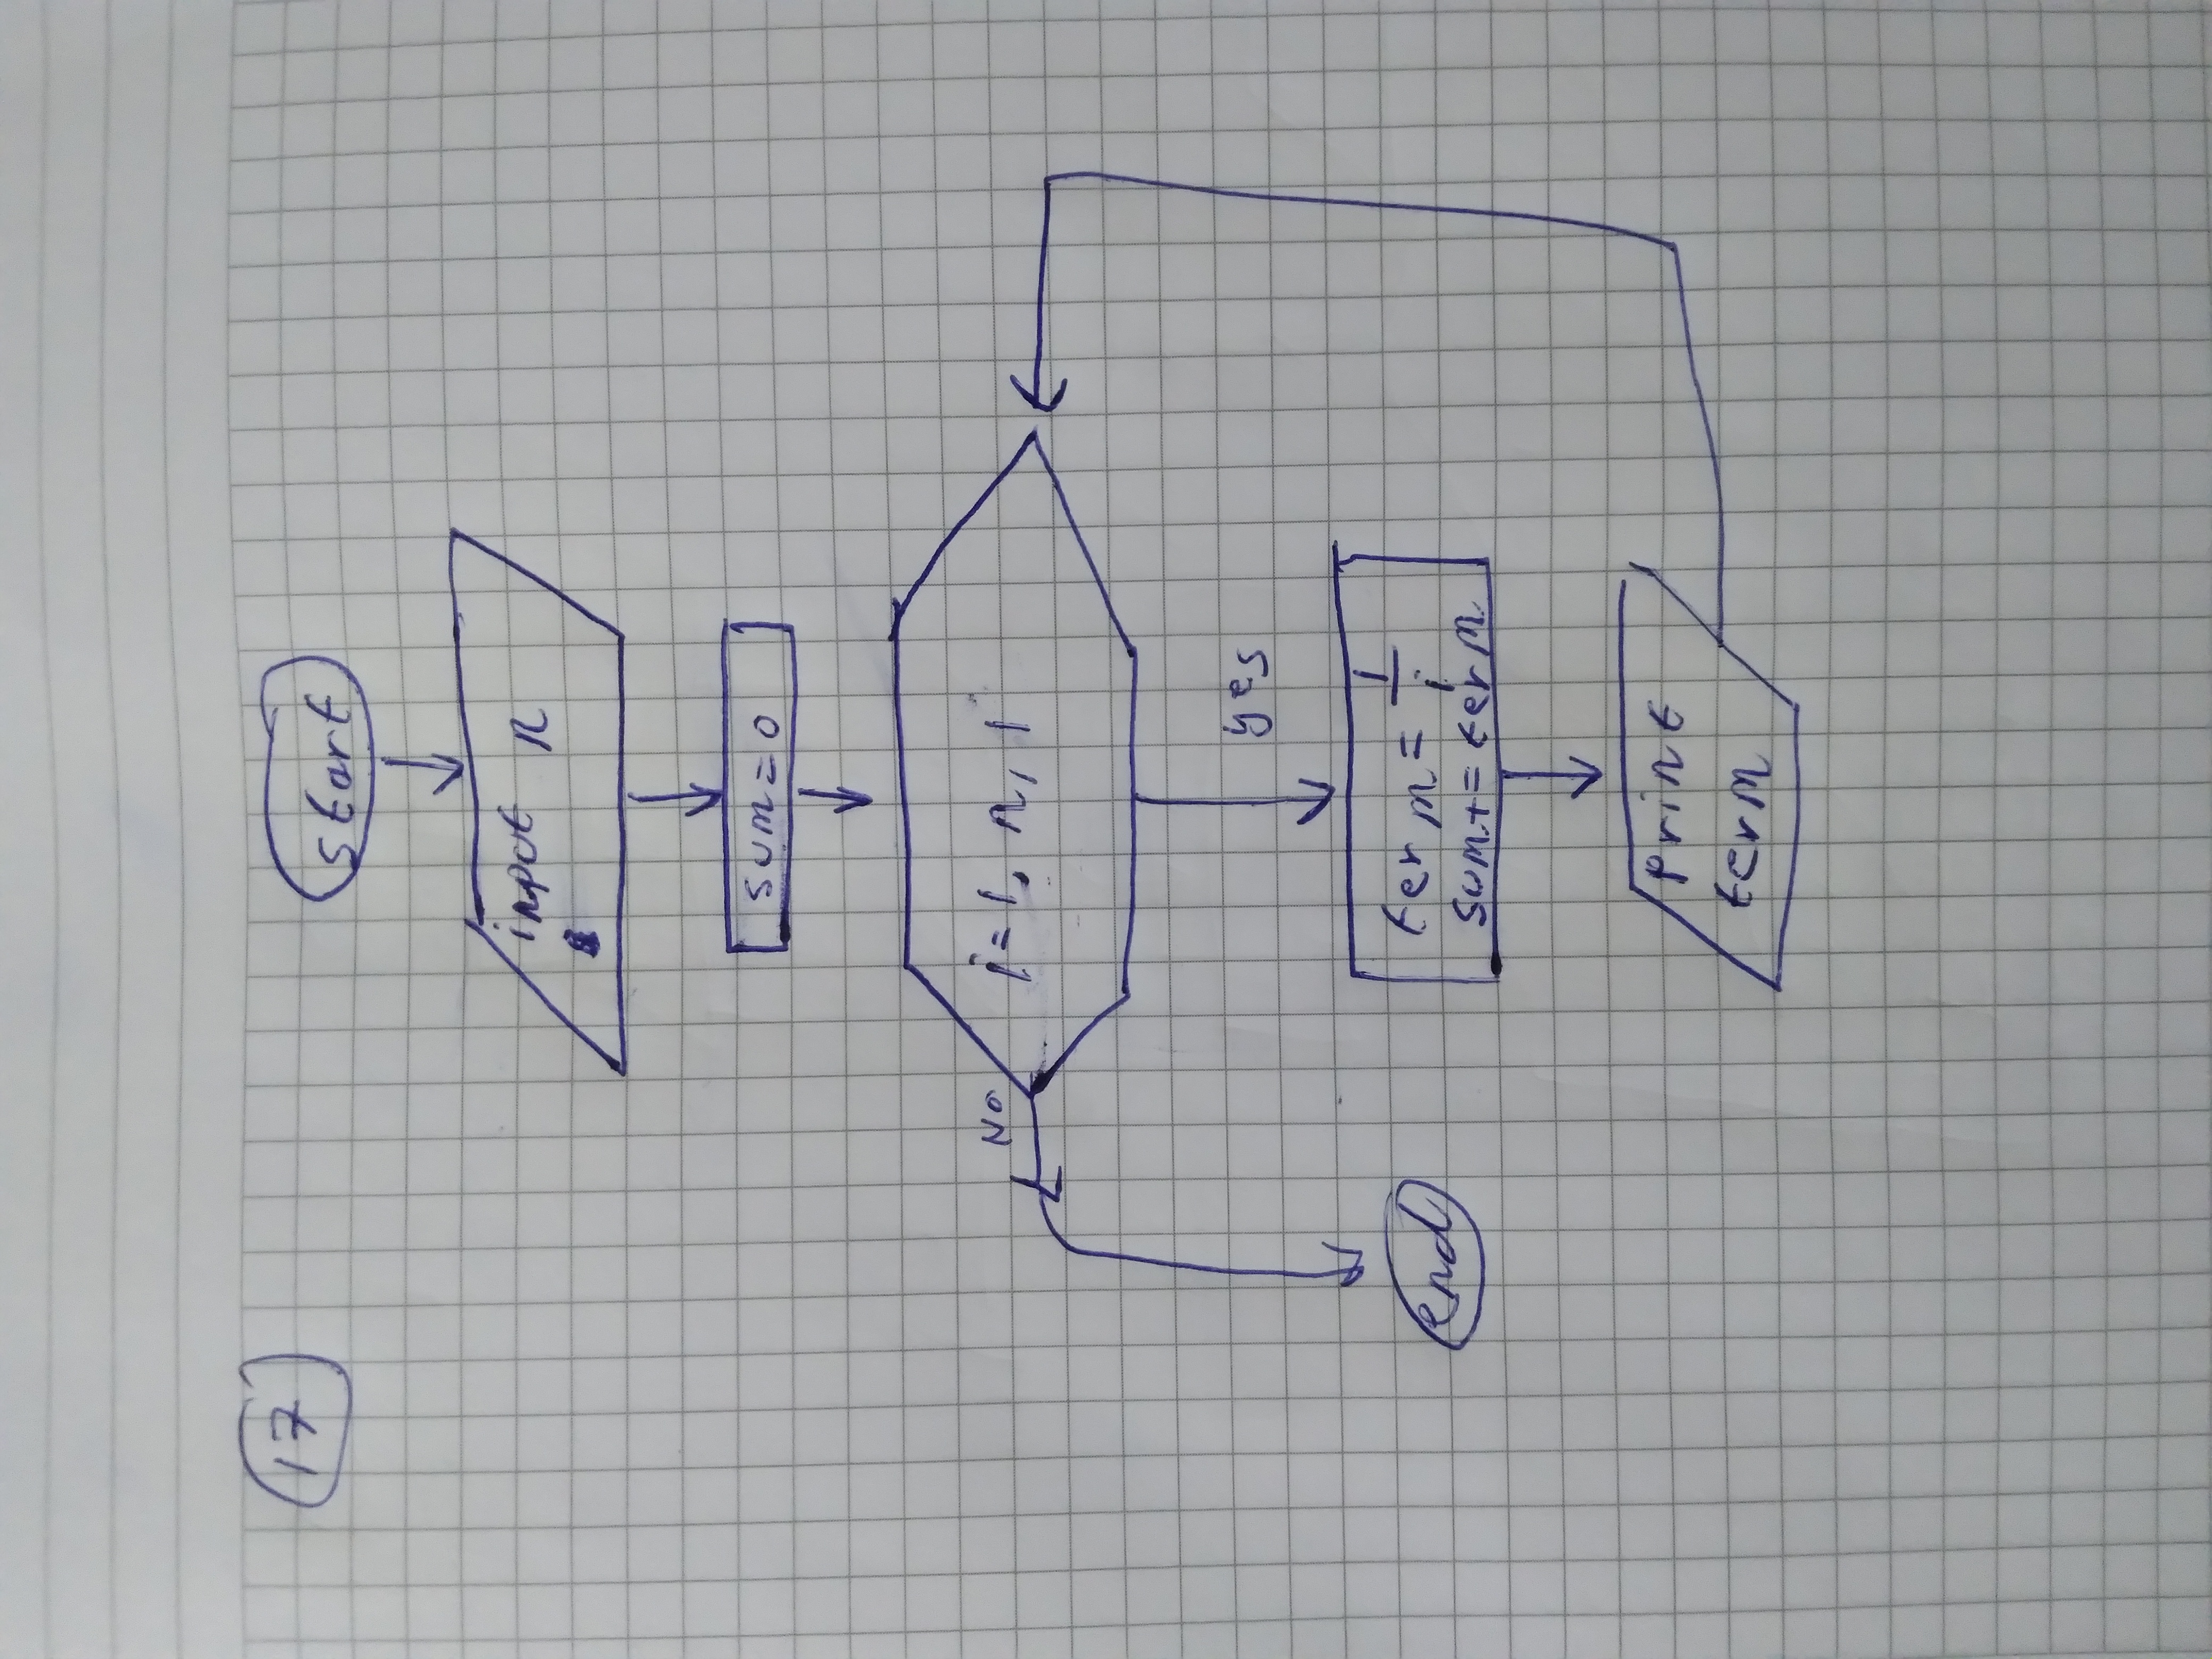 17
start
input n
sum=0
i=1, n, 1
No
yes
term= 1/i
sum+= term
end
print
term